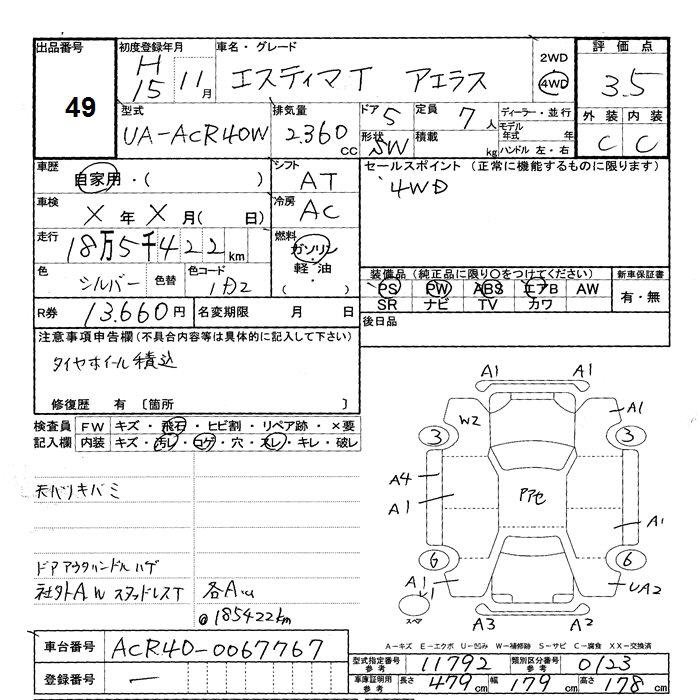 出品番号
49
初度登録年月
H
15 11月
車名・グレード
エスティマT アエラス
2WD
4WD
評価点
3.5
外装 内装
C C
型式
UA-ACR40W
排気量
2.360 cc
ドア 5
形状 SW
定員 7人
積載 kg
ディーラー・並行
モデル年式 年
ハンドル 左・右
車歴
自家用・( )
車検
X年X月( 日)
走行
18万5千422km
色
シルバー
色替
色コード
1D2
シフト
AT
冷房
AC
燃料
ガソリン・
軽油・
( )
セールスポイント(正常に機能するものに限ります)
4WD
装備品(純正品に限り○をつけてください)
PS PW ABS エアB AW
SR ナビ TV カワ
新車保証書
有・無
R券 13.660円
名変期限 月 日
後日品
注意事項申告欄(不具合内容等は具体的に記入して下さい)
タイヤホイール積込
修復歴 有〔箇所 〕
検査員記入欄
FW キズ・飛石・ヒビ割・リペア跡・×要
内装 キズ・汚レ・コゲ・穴・スレ・キレ・破レ
天バリキバミ
ドアアウタハンドルハゲ
社外AW スタッドレスT
各A
@185422km
A1 A1
W2 A1
3 3
A4
A1
アアセ
A1
6 6
A1
スペア
UA2
A3 A2
A-キズ E-エクボ U-凹み W-補修跡 S-サビ C-腐食 XX-交換済
車台番号 ACR40-0067767
登録番号 —
型式指定番号 参考 11792
類別区分番号 参考 0123
車庫証明用 参考 長さ 479cm 幅 179cm 高さ 178cm